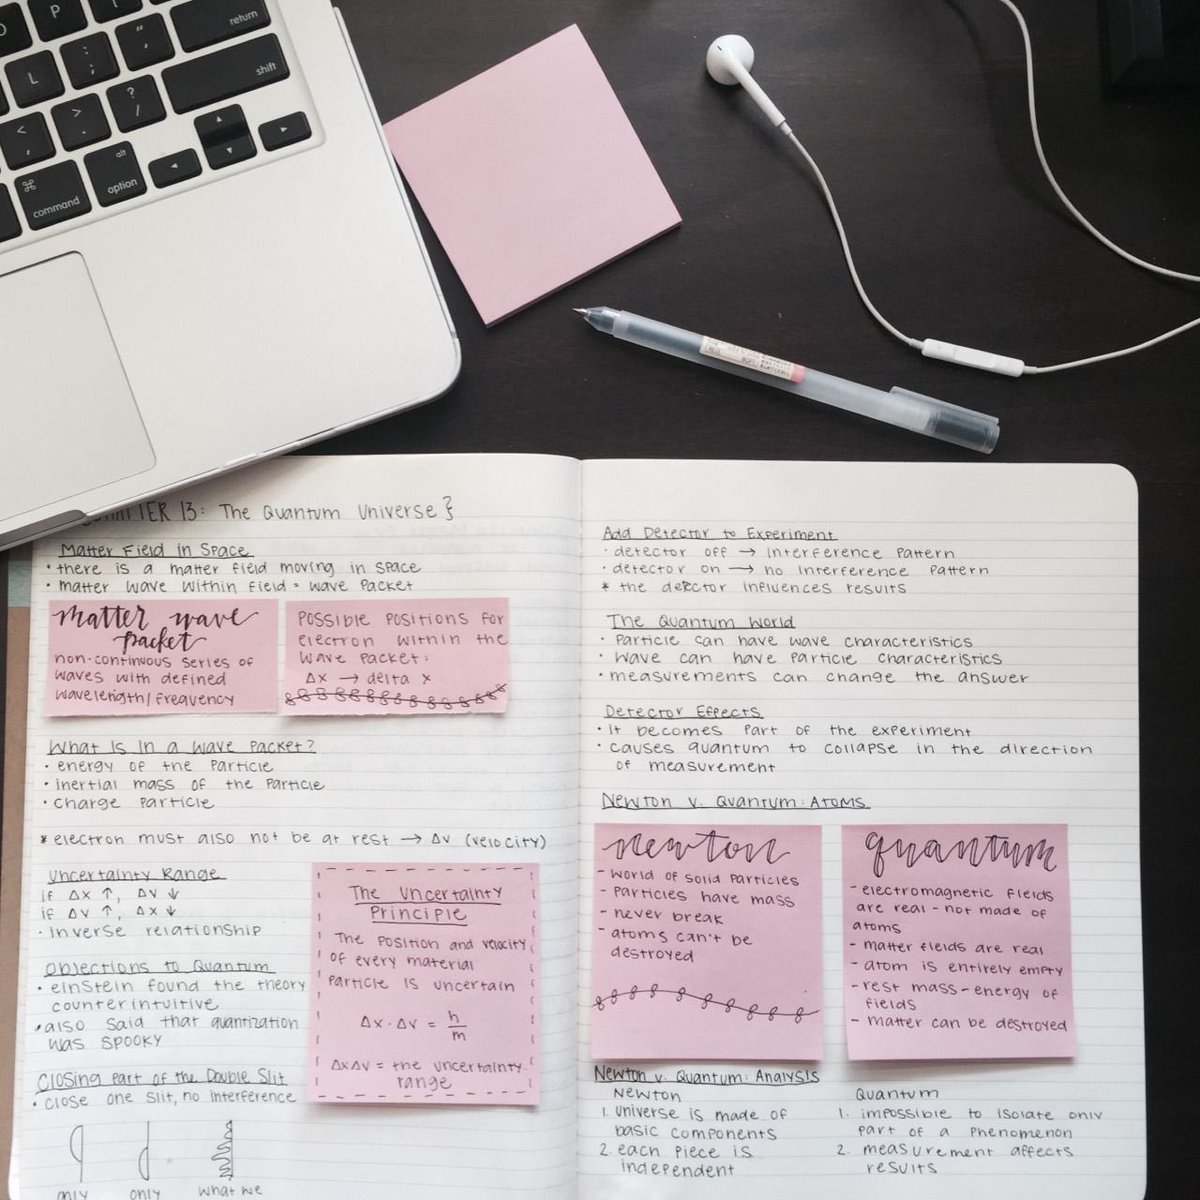 P
return
L
:
;
"
'
shift
<
,
>
.
?
/
alt
option
⌘
command
13: The Quantum Universe }
Matter Field in Space
• there is a matter field moving in space
• matter wave within field = wave packet
matter wave
packet
non-continuous series of
waves with defined
wavelength/frequency
possible positions for
electron within the
wave packet:
Δx → delta x
What is in a wave packet?
• energy of the particle
• inertial mass of the particle
• charge particle
* electron must also not be at rest → Δv (velocity)
Uncertainty Range
if Δx ↑, Δv ↓
if Δv ↑, Δx ↓
• inverse relationship
The Uncertainty
Principle
The position and velocity
of every material
particle is uncertain
Δx·Δv = h/m
ΔxΔv = the uncertainty
range
Objections to Quantum
• einstein found the theory
counterintuitive
• also said that quantization
was SPOOKY
Closing Part of the Double Slit
• close one slit, no interference
only
only
what we
Add Detector to Experiment
• detector off → interference pattern
• detector on → no interference pattern
* the detector influences results
The Quantum World
• particle can have wave characteristics
• wave can have particle characteristics
• measurements can change the answer
Detector Effects
• it becomes part of the experiment
• causes quantum to collapse in the direction
of measurement
Newton v. Quantum: Atoms
newton
- world of solid particles
- particles have mass
- never break
- atoms can't be
destroyed
quantum
- electromagnetic fields
are real - not made of
atoms
- matter fields are real
- atom is entirely empty
- rest mass - energy of
fields
- matter can be destroyed
Newton v. Quantum: Analysis
Newton
1. universe is made of
basic components
2. each piece is
independent
Quantum
1. impossible to isolate only
part of a phenomenon
2. measurement affects
results